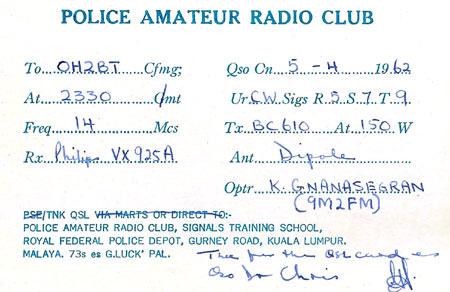 POLICE AMATEUR RADIO CLUB
To....OH2BT......Cfmg; Qso On....5 - 4......1962
At......2330.........Gmt Ur.CW.Sigs R.5.S.7.T.9
Freq........14........Mcs Tx...BC610...At.150.W
Rx..Philips VX925A Ant......Dipole
Optr..K. GNANASEGRAN
(9M2FM)
PSE/TNK QSL VIA MARTS OR DIRECT TO:-
POLICE AMATEUR RADIO CLUB, SIGNALS TRAINING SCHOOL,
ROYAL FEDERAL POLICE DEPOT, GURNEY ROAD, KUALA LUMPUR.
MALAYA. 73s es G.LUCK' PAL. for the QSL card es
Qso Dr Chris